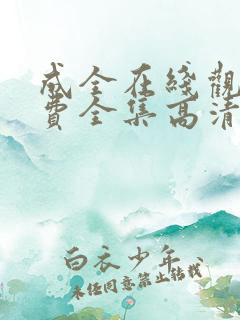 成全在綫觀
費全集高清
白衣少年
未经同意禁止转载